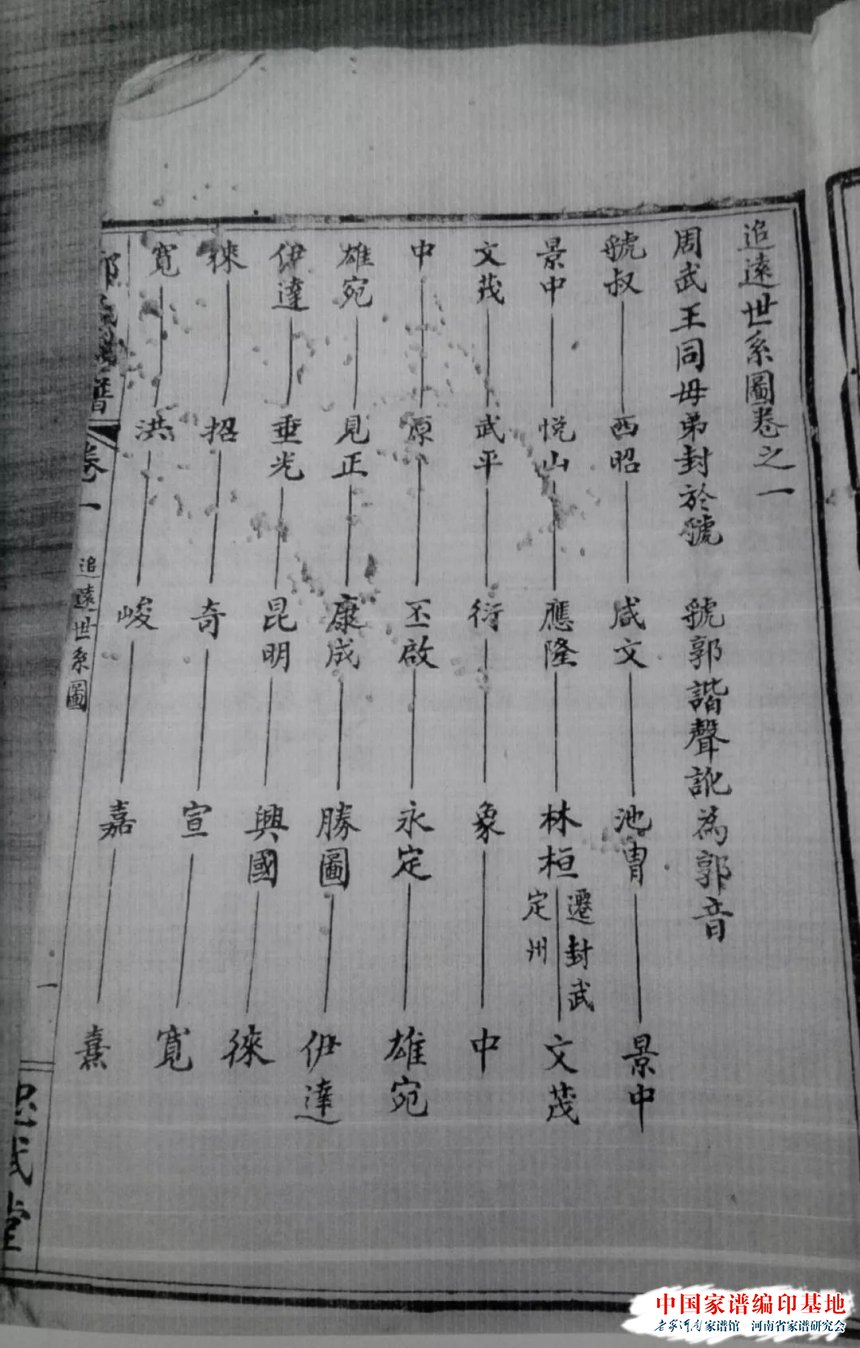 追遠世系圖卷之一
周武王同母弟封於虢 虢郭諧聲訛為郭音
虢叔 西昭 咸文 池胄 景中
景中 悅山 應隆 林桓 遷封武定州 文茂
文茂 武平 衍 象 中
中 原 丕啟 永定 雄宛
雄宛 見正 康成 勝圖 伊達
伊達 垂光 昆明 興國 徠
徠 招 奇 宣 寬
寬 洪 峻 嘉 熹
譜 卷一 追遠世系圖 一 忠武堂
中国家谱编印基地
老家河南家谱馆 河南省家谱研究会